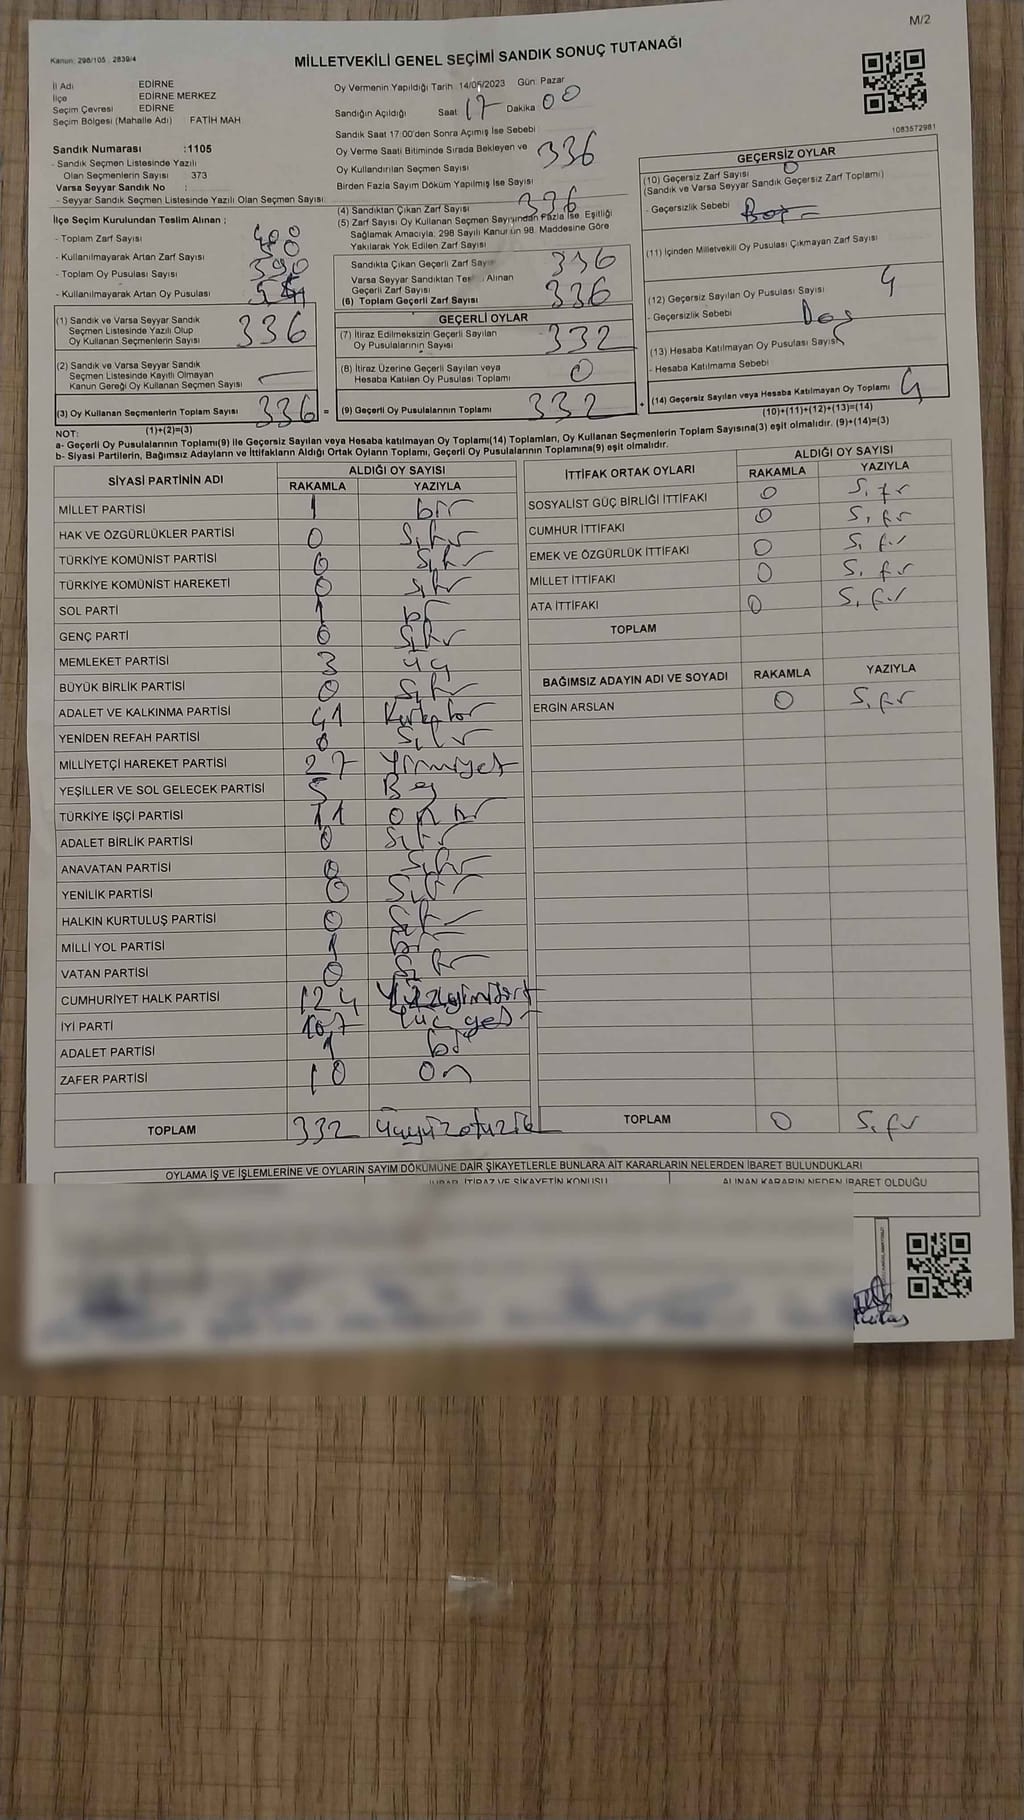 M/2
Kanun: 298/105 , 2839/4
MİLLETVEKİLİ GENEL SEÇİMİ SANDIK SONUÇ TUTANAĞI
İl Adı EDİRNE
İlçe EDİRNE MERKEZ
Seçim Çevresi EDİRNE
Seçim Bölgesi (Mahalle Adı) : FATİH MAH
Sandık Numarası :1105
- Sandık Seçmen Listesinde Yazılı
Olan Seçmenlerin Sayısı : 373
Varsa Seyyar Sandık No :
- Seyyar Sandık Seçmen Listesinde Yazılı Olan Seçmen Sayısı:
İlçe Seçim Kurulundan Teslim Alınan ;
- Toplam Zarf Sayısı 400
- Kullanılmayarak Artan Zarf Sayısı
- Toplam Oy Pusulası Sayısı 390
- Kullanılmayarak Artan Oy Pusulası 54
(1) Sandık ve Varsa Seyyar Sandık
Seçmen Listesinde Yazılı Olup
Oy Kullanan Seçmenlerin Sayısı 336
(2) Sandık ve Varsa Seyyar Sandık
Seçmen Listesinde Kayıtlı Olmayan
Kanun Gereği Oy Kullanan Seçmen Sayısı —
(3) Oy Kullanan Seçmenlerin Toplam Sayısı 336 =
(1)+(2)=(3)
Oy Vermenin Yapıldığı Tarih : 14/05/2023 Gün: Pazar
Sandığın Açıldığı Saat: 17 Dakika 00
Sandık Saat 17:00'den Sonra Açımış İse Sebebi
Oy Verme Saati Bitiminde Sırada Bekleyen ve
Oy Kullandırılan Seçmen Sayısı 336
Birden Fazla Sayım Döküm Yapılmış İse Sayısı
(4) Sandıktan Çıkan Zarf Sayısı 336
(5) Zarf Sayısı Oy Kullanan Seçmen Sayısından Fazla İse, Eşitliği
Sağlamak Amacıyla, 298 Sayılı Kanunun 98. Maddesine Göre
Yakılarak Yok Edilen Zarf Sayısı
Sandıkta Çıkan Geçerli Zarf Sayısı 336
Varsa Seyyar Sandıktan Teslim Alınan
Geçerli Zarf Sayısı
(6) Toplam Geçerli Zarf Sayısı 336
GEÇERLİ OYLAR
(7) İtiraz Edilmeksizin Geçerli Sayılan
Oy Pusulalarının Sayısı 332
(8) İtiraz Üzerine Geçerli Sayılan veya
Hesaba Katılan Oy Pusulası Toplamı 0
(9) Geçerli Oy Pusulalarının Toplamı 332 +
1083572981
GEÇERSİZ OYLAR
(10) Geçersiz Zarf Sayısı 0
(Sandık ve Varsa Seyyar Sandık Geçersiz Zarf Toplamı)
- Geçersizlik Sebebi
(11) İçinden Milletvekili Oy Pusulası Çıkmayan Zarf Sayısı
(12) Geçersiz Sayılan Oy Pusulası Sayısı 4
- Geçersizlik Sebebi
(13) Hesaba Katılmayan Oy Pusulası Sayısı
- Hesaba Katılmama Sebebi
(14) Geçersiz Sayılan veya Hesaba Katılmayan Oy Toplamı 4
(10)+(11)+(12)+(13)=(14)
NOT:
a- Geçerli Oy Pusulalarının Toplamı(9) ile Geçersiz Sayılan veya Hesaba katılmayan Oy Toplamı(14) Toplamları, Oy Kullanan Seçmenlerin Toplam Sayısına(3) eşit olmalıdır. (9)+(14)=(3)
b- Siyasi Partilerin, Bağımsız Adayların ve İttifakların Aldığı Ortak Oyların Toplamı, Geçerli Oy Pusulalarının Toplamına(9) eşit olmalıdır.
SİYASİ PARTİNİN ADI ALDIĞI OY SAYISI
RAKAMLA YAZIYLA
MİLLET PARTİSİ 1 bir
HAK VE ÖZGÜRLÜKLER PARTİSİ 0 Sıfır
TÜRKİYE KOMÜNİST PARTİSİ 0 Sıfır
TÜRKİYE KOMÜNİST HAREKETİ 0 sıfır
SOL PARTİ 1 bir
GENÇ PARTİ 0 Sıfır
MEMLEKET PARTİSİ 3 üç
BÜYÜK BİRLİK PARTİSİ 0 Sıfır
ADALET VE KALKINMA PARTİSİ 41 Kırkbir
YENİDEN REFAH PARTİSİ 0 Sıfır
MİLLİYETÇİ HAREKET PARTİSİ 27 Yirmiyet
YEŞİLLER VE SOL GELECEK PARTİSİ 5 Beş
TÜRKİYE İŞÇİ PARTİSİ 11 on bir
ADALET BİRLİK PARTİSİ 0 Sıfır
ANAVATAN PARTİSİ 0 Sıfır
YENİLİK PARTİSİ 0 Sıfır
HALKIN KURTULUŞ PARTİSİ 0 Sıfır
MİLLİ YOL PARTİSİ 1 bir
VATAN PARTİSİ 0 Sıfır
CUMHURİYET HALK PARTİSİ 124 Yüzyirmidört
İYİ PARTİ 107
ADALET PARTİSİ 1 bir
ZAFER PARTİSİ 10 On
TOPLAM 332 üçyüzotuziki
İTTİFAK ORTAK OYLARI ALDIĞI OY SAYISI
RAKAMLA YAZIYLA
SOSYALİST GÜÇ BİRLİĞİ İTTİFAKI 0 Sıfır
CUMHUR İTTİFAKI 0 Sıfır
EMEK VE ÖZGÜRLÜK İTTİFAKI 0 Sıfır
MİLLET İTTİFAKI 0 Sıfır
ATA İTTİFAKI 0 Sıfır
TOPLAM
BAĞIMSIZ ADAYIN ADI VE SOYADI RAKAMLA YAZIYLA
ERGİN ARSLAN 0 Sıfır
TOPLAM 0 Sıfır
OYLAMA İŞ VE İŞLEMLERİNE VE OYLARIN SAYIM DÖKÜMÜNE DAİR ŞİKAYETLERLE BUNLARA AİT KARARLARIN NELERDEN İBARET BULUNDUKLARI
İHBAR, İTİRAZ VE ŞİKAYETİN KONUSU ALINAN KARARIN NEDEN İBARET OLDUĞU